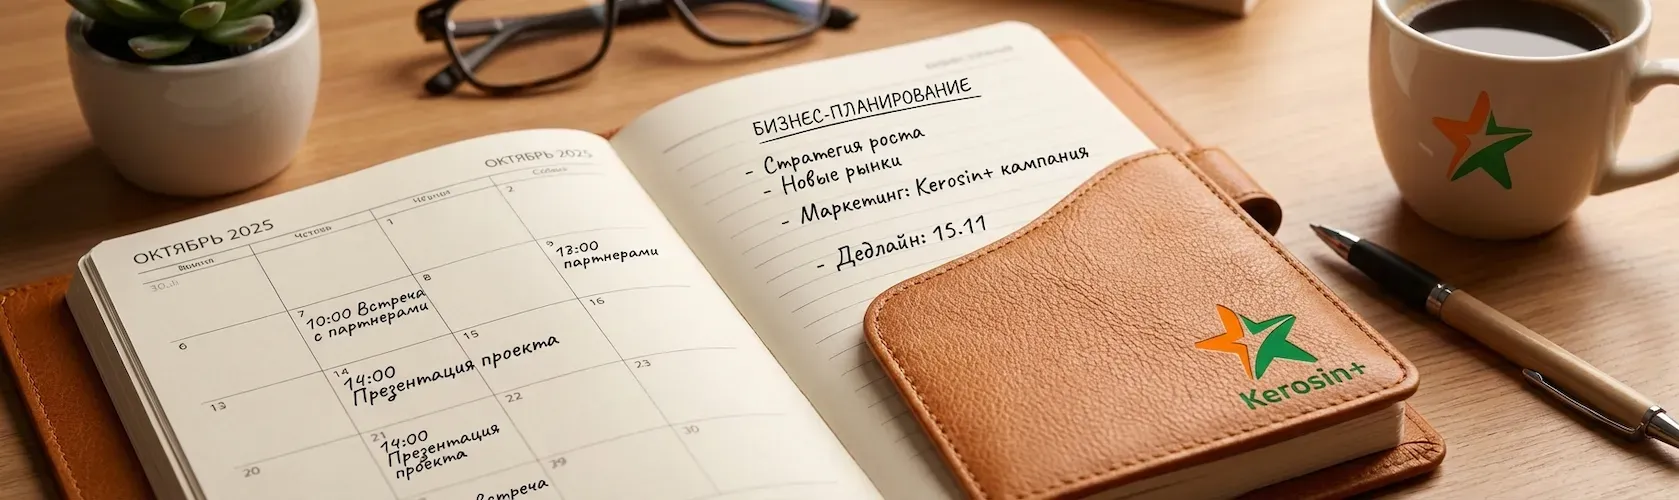 ОКТЯБРЬ 2025
ОКТЯБРЬ 2025
1
2
6
7
10:00 Встреча
с партнерами
8
9
13:00
партнерами
13
14
14:00
Презентация проекта
15
16
20
21
14:00
Презентация
проекта
22
23
30
встреча
БИЗНЕС-ПЛАНИРОВАНИЕ
- Стратегия роста
- Новые рынки
- Маркетинг: Kerosin+ кампания
- Дедлайн: 15.11
Kerosin+